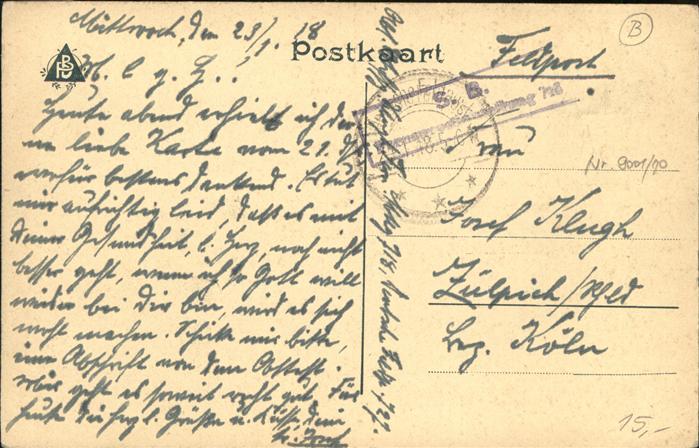 Mittwoch, den 23/1. 18
Postkaart
Feldpost
B
M. l. g. G..!
Heute abend erhielt ich dei-
ne liebe Karte vom 21. ds
wofür bestens dankend. Es tut
mir aufrichtig leid, daß es mit
deiner Gesundheit, l. Herz, noch nicht
besser geht, wenn ich so Gott will
wieder bei dir bin, wird es sich
noch machen. Schicke mir bitte,
eine Abschrift von dem Attest.
Mir geht es soweit recht gut. Für
heute die herzl. Grüße u. Küsse dein
l. Josef
S. B.
718
Frau
Nr. 9001/10
Josef Klugh
Zülpich/Rhld
Bez. Köln
718, Deutsche Feldp. 127.
15,-